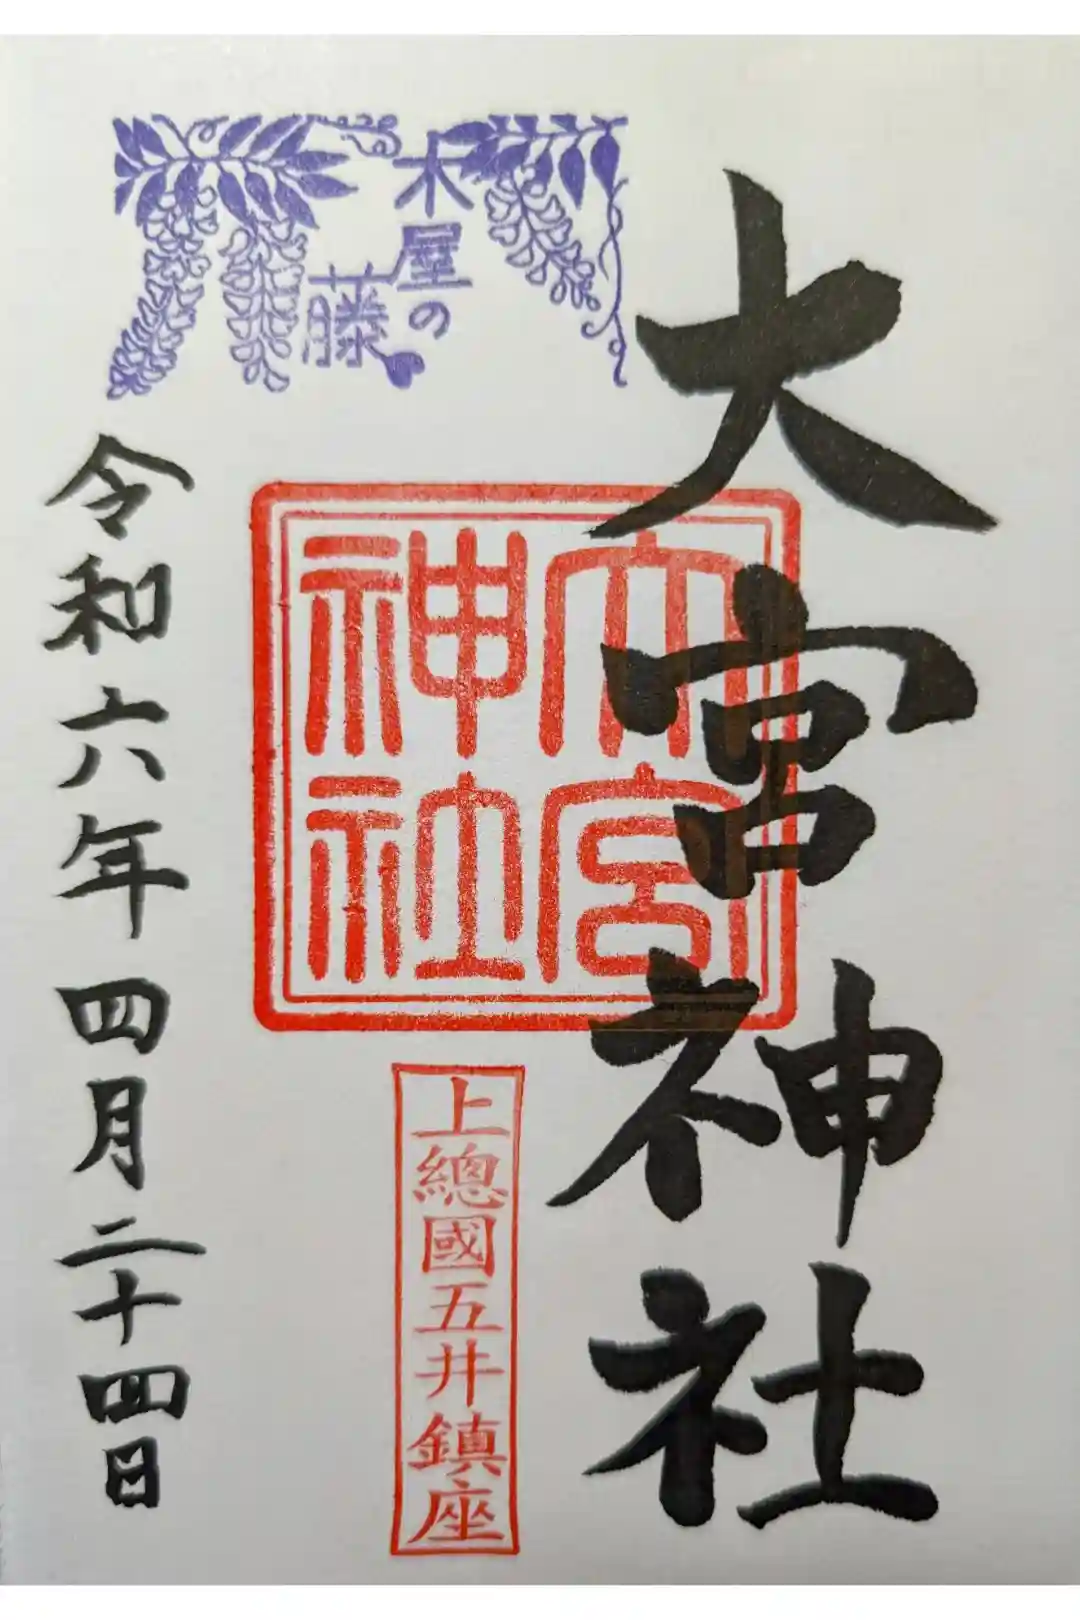 大宮神社
木屋の
藤
大宮
神社
上總國五井鎮座
令和六年四月二十四日